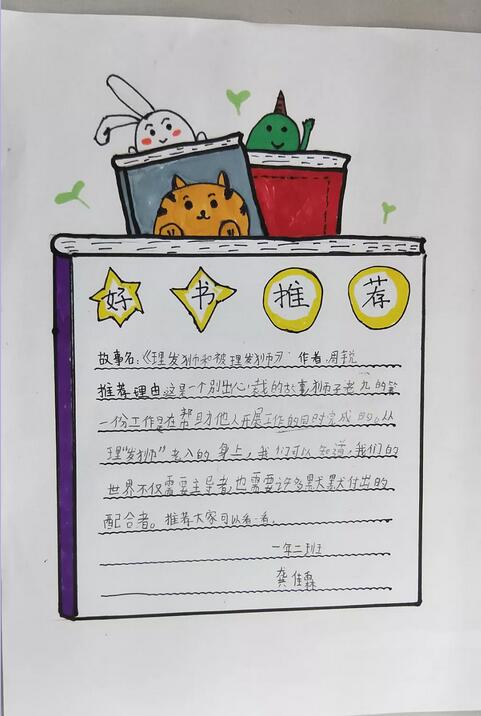 好书推荐
故事名:《理发狮和被理发狮》 作者:周锐
推荐理由:这是一个别出心裁的故事,狮子老九的第
一份工作是在帮助他人开展工作的同时完成的,从
理"发狮"老入的身上,我们可以知道,我们的
世界不仅需要主导者,也需要许多默默付出的
配合者。推荐大家可以看一看。
一年二班
龚佳霖